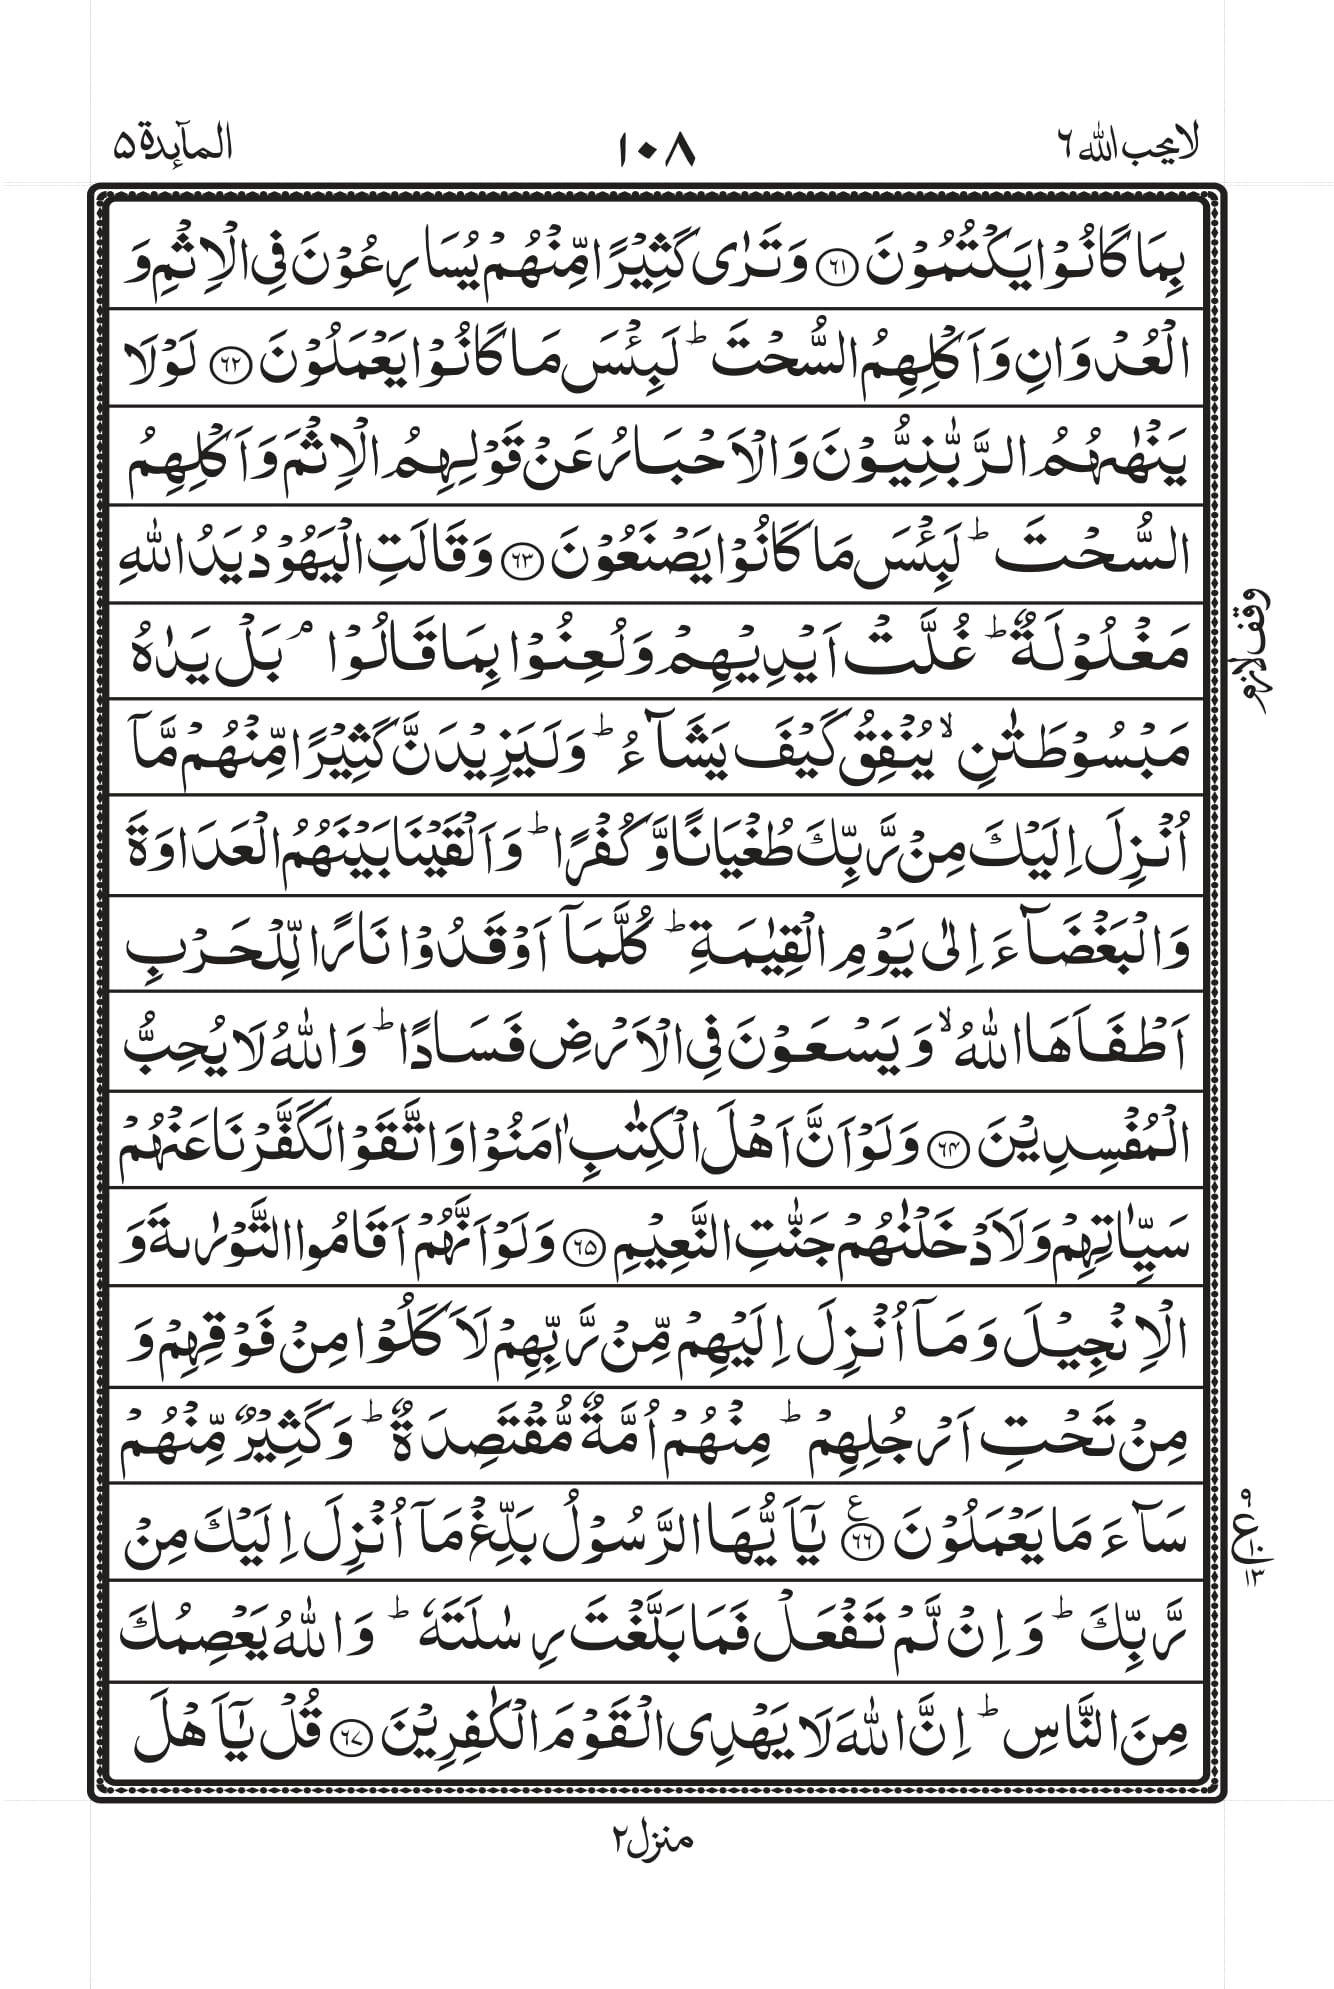 لا يحب الله ٦
١٠٨
المآىِٕدة ۵
بِمَا كَانُوْا يَكْتُمُوْنَ ﴿٦١﴾ وَتَرٰى كَثِيْرًا مِّنْهُمْ يُسَارِعُوْنَ فِى الْاِثْمِ وَ
الْعُدْوَانِ وَاَكْلِهِمُ السُّحْتَ ؕ لَبِئْسَ مَا كَانُوْا يَعْمَلُوْنَ ﴿٦٢﴾ لَوْلَا
يَنْهٰىهُمُ الرَّبّٰنِيُّوْنَ وَالْاَحْبَارُ عَنْ قَوْلِهِمُ الْاِثْمَ وَاَكْلِهِمُ
السُّحْتَ ؕ لَبِئْسَ مَا كَانُوْا يَصْنَعُوْنَ ﴿٦٣﴾ وَقَالَتِ الْيَهُوْدُ يَدُ اللّٰهِ
مَغْلُوْلَةٌ ؕ غُلَّتْ اَيْدِيْهِمْ وَلُعِنُوْا بِمَا قَالُوْا ۘ بَلْ يَدٰهُ
مَبْسُوْطَتٰنِ ۙ يُنْفِقُ كَيْفَ يَشَآءُ ؕ وَلَيَزِيْدَنَّ كَثِيْرًا مِّنْهُمْ مَّآ
اُنْزِلَ اِلَيْكَ مِنْ رَّبِّكَ طُغْيَانًا وَّكُفْرًا ؕ وَاَلْقَيْنَا بَيْنَهُمُ الْعَدَاوَةَ
وَالْبَغْضَآءَ اِلٰى يَوْمِ الْقِيٰمَةِ ؕ كُلَّمَآ اَوْقَدُوْا نَارًا لِّلْحَرْبِ
اَطْفَاَهَا اللّٰهُ ۙ وَيَسْعَوْنَ فِى الْاَرْضِ فَسَادًا ؕ وَاللّٰهُ لَا يُحِبُّ
الْمُفْسِدِيْنَ ﴿٦۴﴾ وَلَوْ اَنَّ اَهْلَ الْكِتٰبِ اٰمَنُوْا وَاتَّقَوْا لَكَفَّرْنَا عَنْهُمْ
سَيِّاٰتِهِمْ وَلَاَدْخَلْنٰهُمْ جَنّٰتِ النَّعِيْمِ ﴿٦۵﴾ وَلَوْ اَنَّهُمْ اَقَامُوا التَّوْرٰىةَ وَ
الْاِنْجِيْلَ وَمَآ اُنْزِلَ اِلَيْهِمْ مِّنْ رَّبِّهِمْ لَاَكَلُوْا مِنْ فَوْقِهِمْ وَ
مِنْ تَحْتِ اَرْجُلِهِمْ ؕ مِنْهُمْ اُمَّةٌ مُّقْتَصِدَةٌ ؕ وَكَثِيْرٌ مِّنْهُمْ
سَآءَ مَا يَعْمَلُوْنَ ﴿٦٦﴾ ع يٰۤاَيُّهَا الرَّسُوْلُ بَلِّغْ مَآ اُنْزِلَ اِلَيْكَ مِنْ
رَّبِّكَ ؕ وَاِنْ لَّمْ تَفْعَلْ فَمَا بَلَّغْتَ رِسٰلَتَهٗ ؕ وَاللّٰهُ يَعْصِمُكَ
مِنَ النَّاسِ ؕ اِنَّ اللّٰهَ لَا يَهْدِى الْقَوْمَ الْكٰفِرِيْنَ ﴿٦٧﴾ قُلْ يٰۤاَهْلَ
وقف لازم
٩
ع ١٠
١٣
منزل ٢